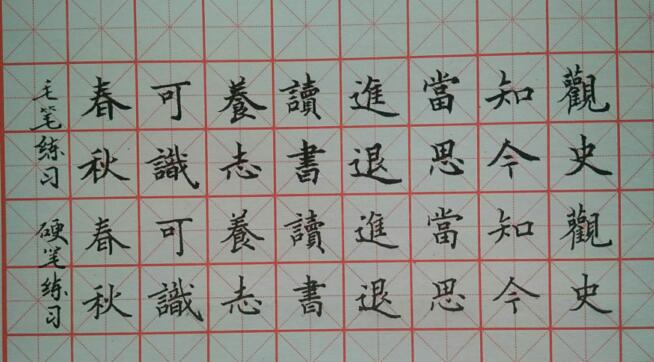 觀史觀史
知今知今
當思當思
進退進退
讀書讀書
養志養志
可識可識
春秋春秋
毛笔练习 硬笔练习